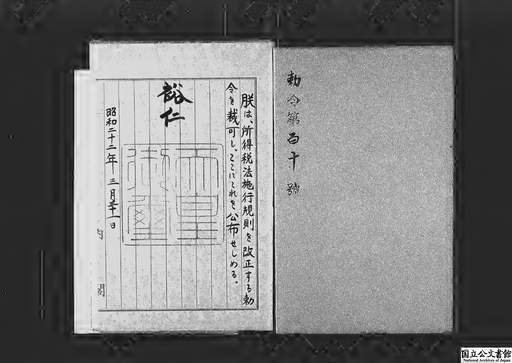 勅令第百十號
朕は、所得税法施行規則を改正する勅
令を裁可し、ここにこれを公布せしめる。
裕仁
天皇
御璽
昭和二十二年三月三十一日
内閣
国立公文書館
National Archives of Japan